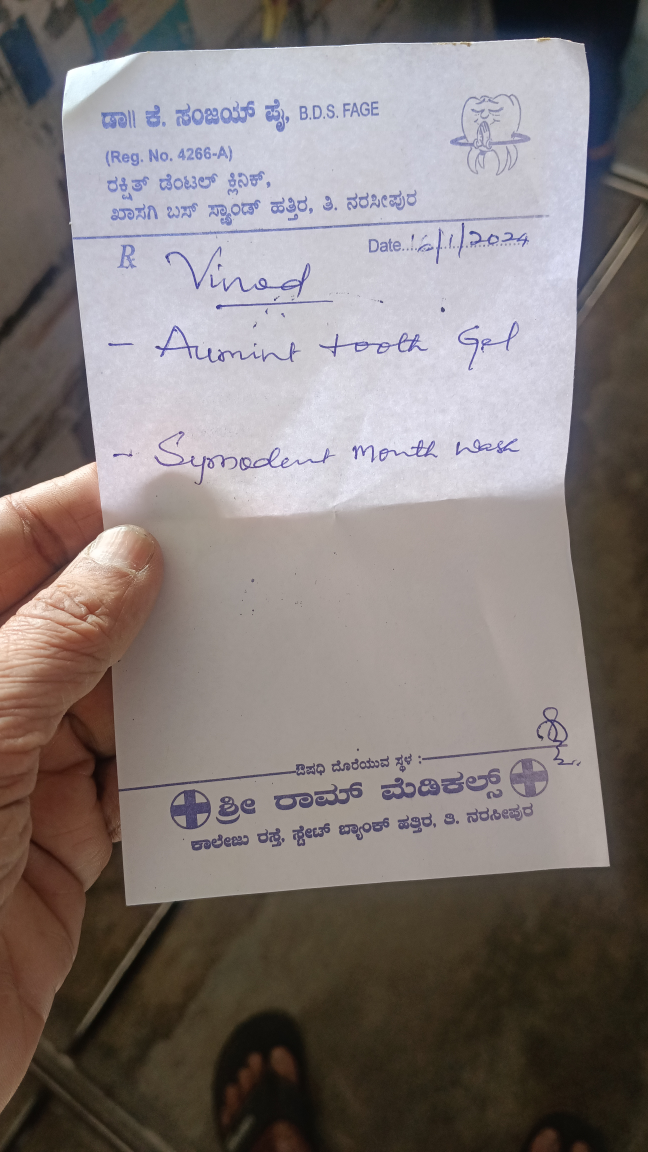 ಡಾ|| ಕೆ. ಸಂಜಯ್ ಪೈ, B.D.S. FAGE
(Reg. No. 4266-A)
ರಕ್ಷಿತ್ ಡೆಂಟಲ್ ಕ್ಲಿನಿಕ್,
ಖಾಸಗಿ ಬಸ್ ಸ್ಟ್ಯಾಂಡ್ ಹತ್ತಿರ, ತಿ. ನರಸೀಪುರ
Date...16/1/2024
℞ Vinod
- Aumint tooth Gel
- Symodent Mouth wash
ಔಷಧಿ ದೊರೆಯುವ ಸ್ಥಳ :
ಶ್ರೀ ರಾಮ್ ಮೆಡಿಕಲ್ಸ್
ಕಾಲೇಜು ರಸ್ತೆ, ಸ್ಟೇಟ್ ಬ್ಯಾಂಕ್ ಹತ್ತಿರ, ತಿ. ನರಸೀಪುರ